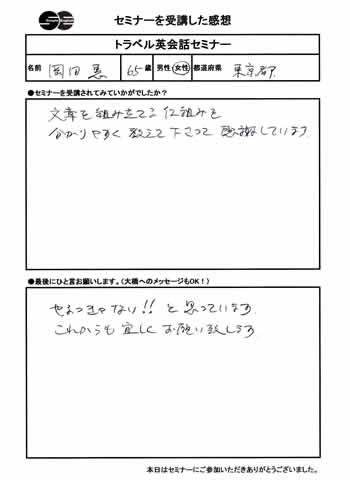 セミナーを受講した感想
トラベル英会話セミナー
名前 岡田 恵 65歳 男性・女性 都道府県 東京都
●セミナーを受講されてみていかがでしたか？
文章を組み立てる仕組みを
分かりやすく教えて下さって感謝しています
●最後にひと言お願いします。(大橋へのメッセージもOK！)
やるっきゃない!!と思っています。
これからも宜しくお願い致します
本日はセミナーにご参加いただきありがとうございました。